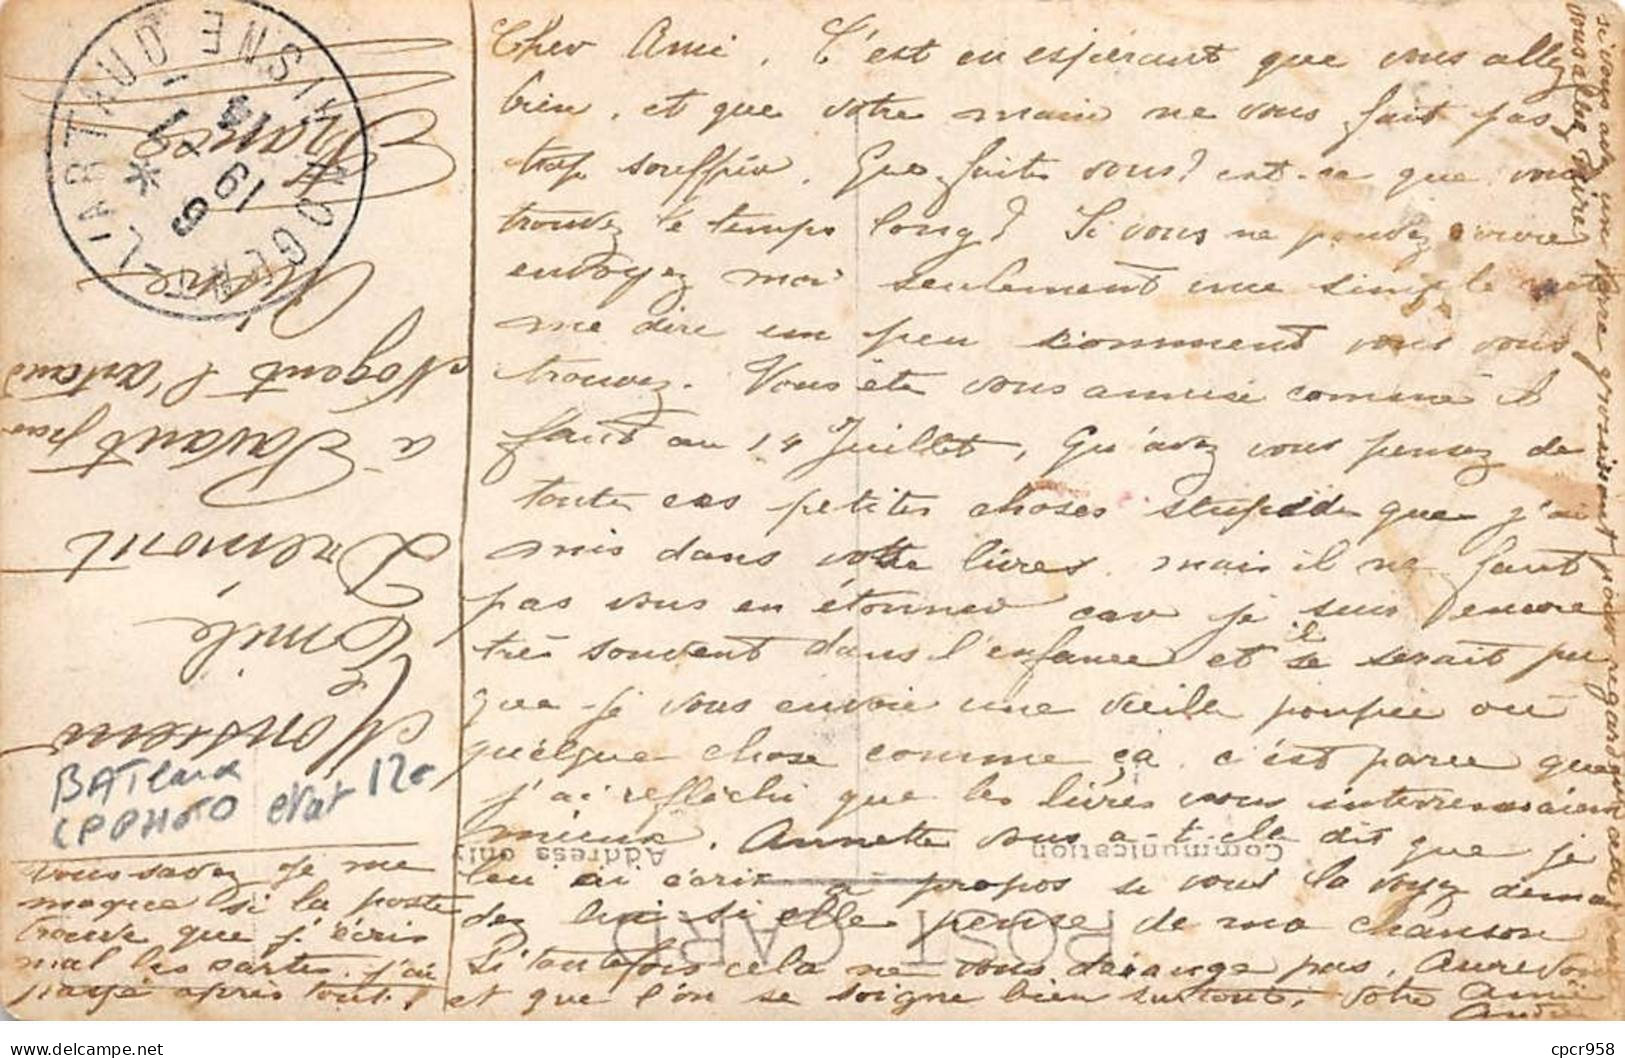 Cher Ami, C'est en espérant que vous allez
bien, et que votre main ne vous fait pas
trop souffrir. Que faites vous? est-ce que vous
trouvez le temps long? Si vous ne pouvez écrire
envoyez moi seulement une simple
me dire un peu comment vous vous
trouvez. Vous ete vous amusé comme il
faut au 14 Juillet, Qu'avez vous pensez de
toute ces petites choses stupide que j'ai
mis dans votre livres. mais il ne faut
pas vous en étonner car je suis encore
très souvent dans l'enfance et il se serait pu
que je vous envoie une vieille poupée ou
quelque chose comme ça. c'est parce que
j'ai réfléchi que les livres vous interressaient
mieux. Annette vous a-t-elle dit que je
lui ai écrit à propos si vous la voyez deman
dez lui si elle pense de ma chanson
Si toutefois cela ne vous derange pas. Aurevoir
et que l'on se soigne bien surtout, votre Amie
si vous avez un verre grossissant pour regarder
vous allez rire
Monsieur
Emile
Dremont
à Pavant par
Nogent l'Artaud
Aisne
France
NOGENT-L'ARTAUD AISNE
BAT
CPPHOTO état 120
vous savez je me
moque si la poste
trouve que j'écris
mal les cartes. j'ai
payé après tout!
POST CARD
Communication
Address only
cpcr958